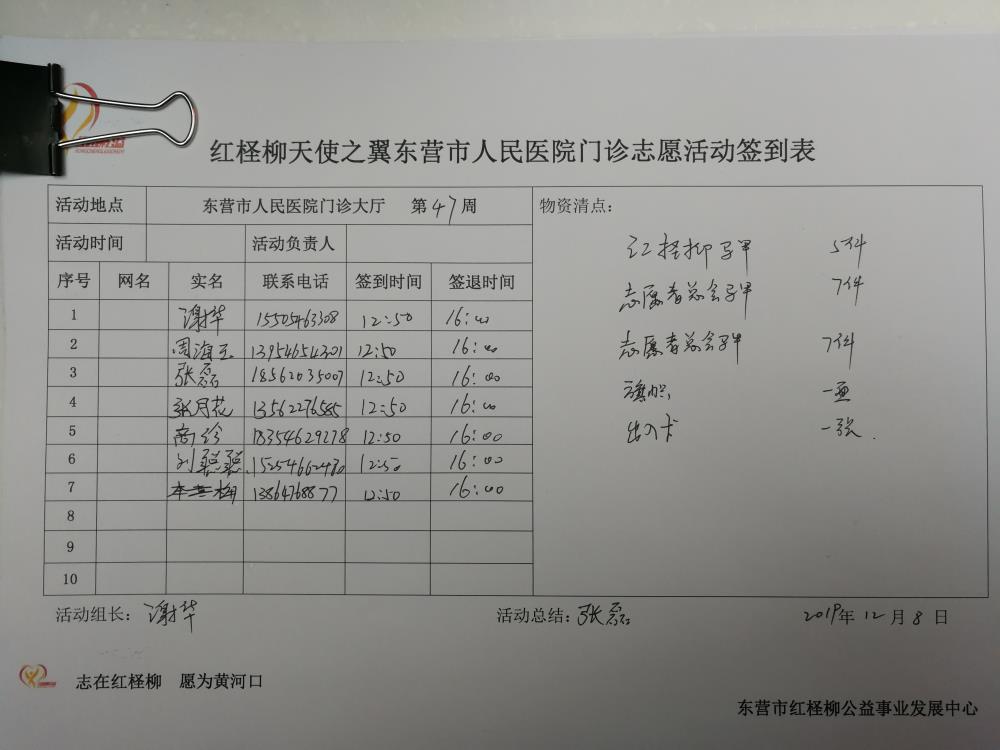 红柽柳天使之翼东营市人民医院门诊志愿活动签到表
活动地点 东营市人民医院门诊大厅 第47周
活动时间 活动负责人
序号 网名 实名 联系电话 签到时间 签退时间
1 谢华 15505463308 12:50 16:00
2 周海玉 13954654301 12:50 16:00
3 张磊 18562035007 12:50 16:00
4 张月花 13562276585 12:50 16:00
5 高珍 18354629278 12:50 16:00
6 刘聪聪 15254662480 12:50 16:00
7 13864768877 12:50 16:00
8
9
10
物资清点:
红柽柳马甲 5件
志愿者总会马甲 7件
志愿者总会马甲 7件
旗帜 一面
出入卡 一张.
活动组长: 谢华 活动总结: 张磊 2019年12月8日
志在红柽柳 愿为黄河口
东营市红柽柳公益事业发展中心